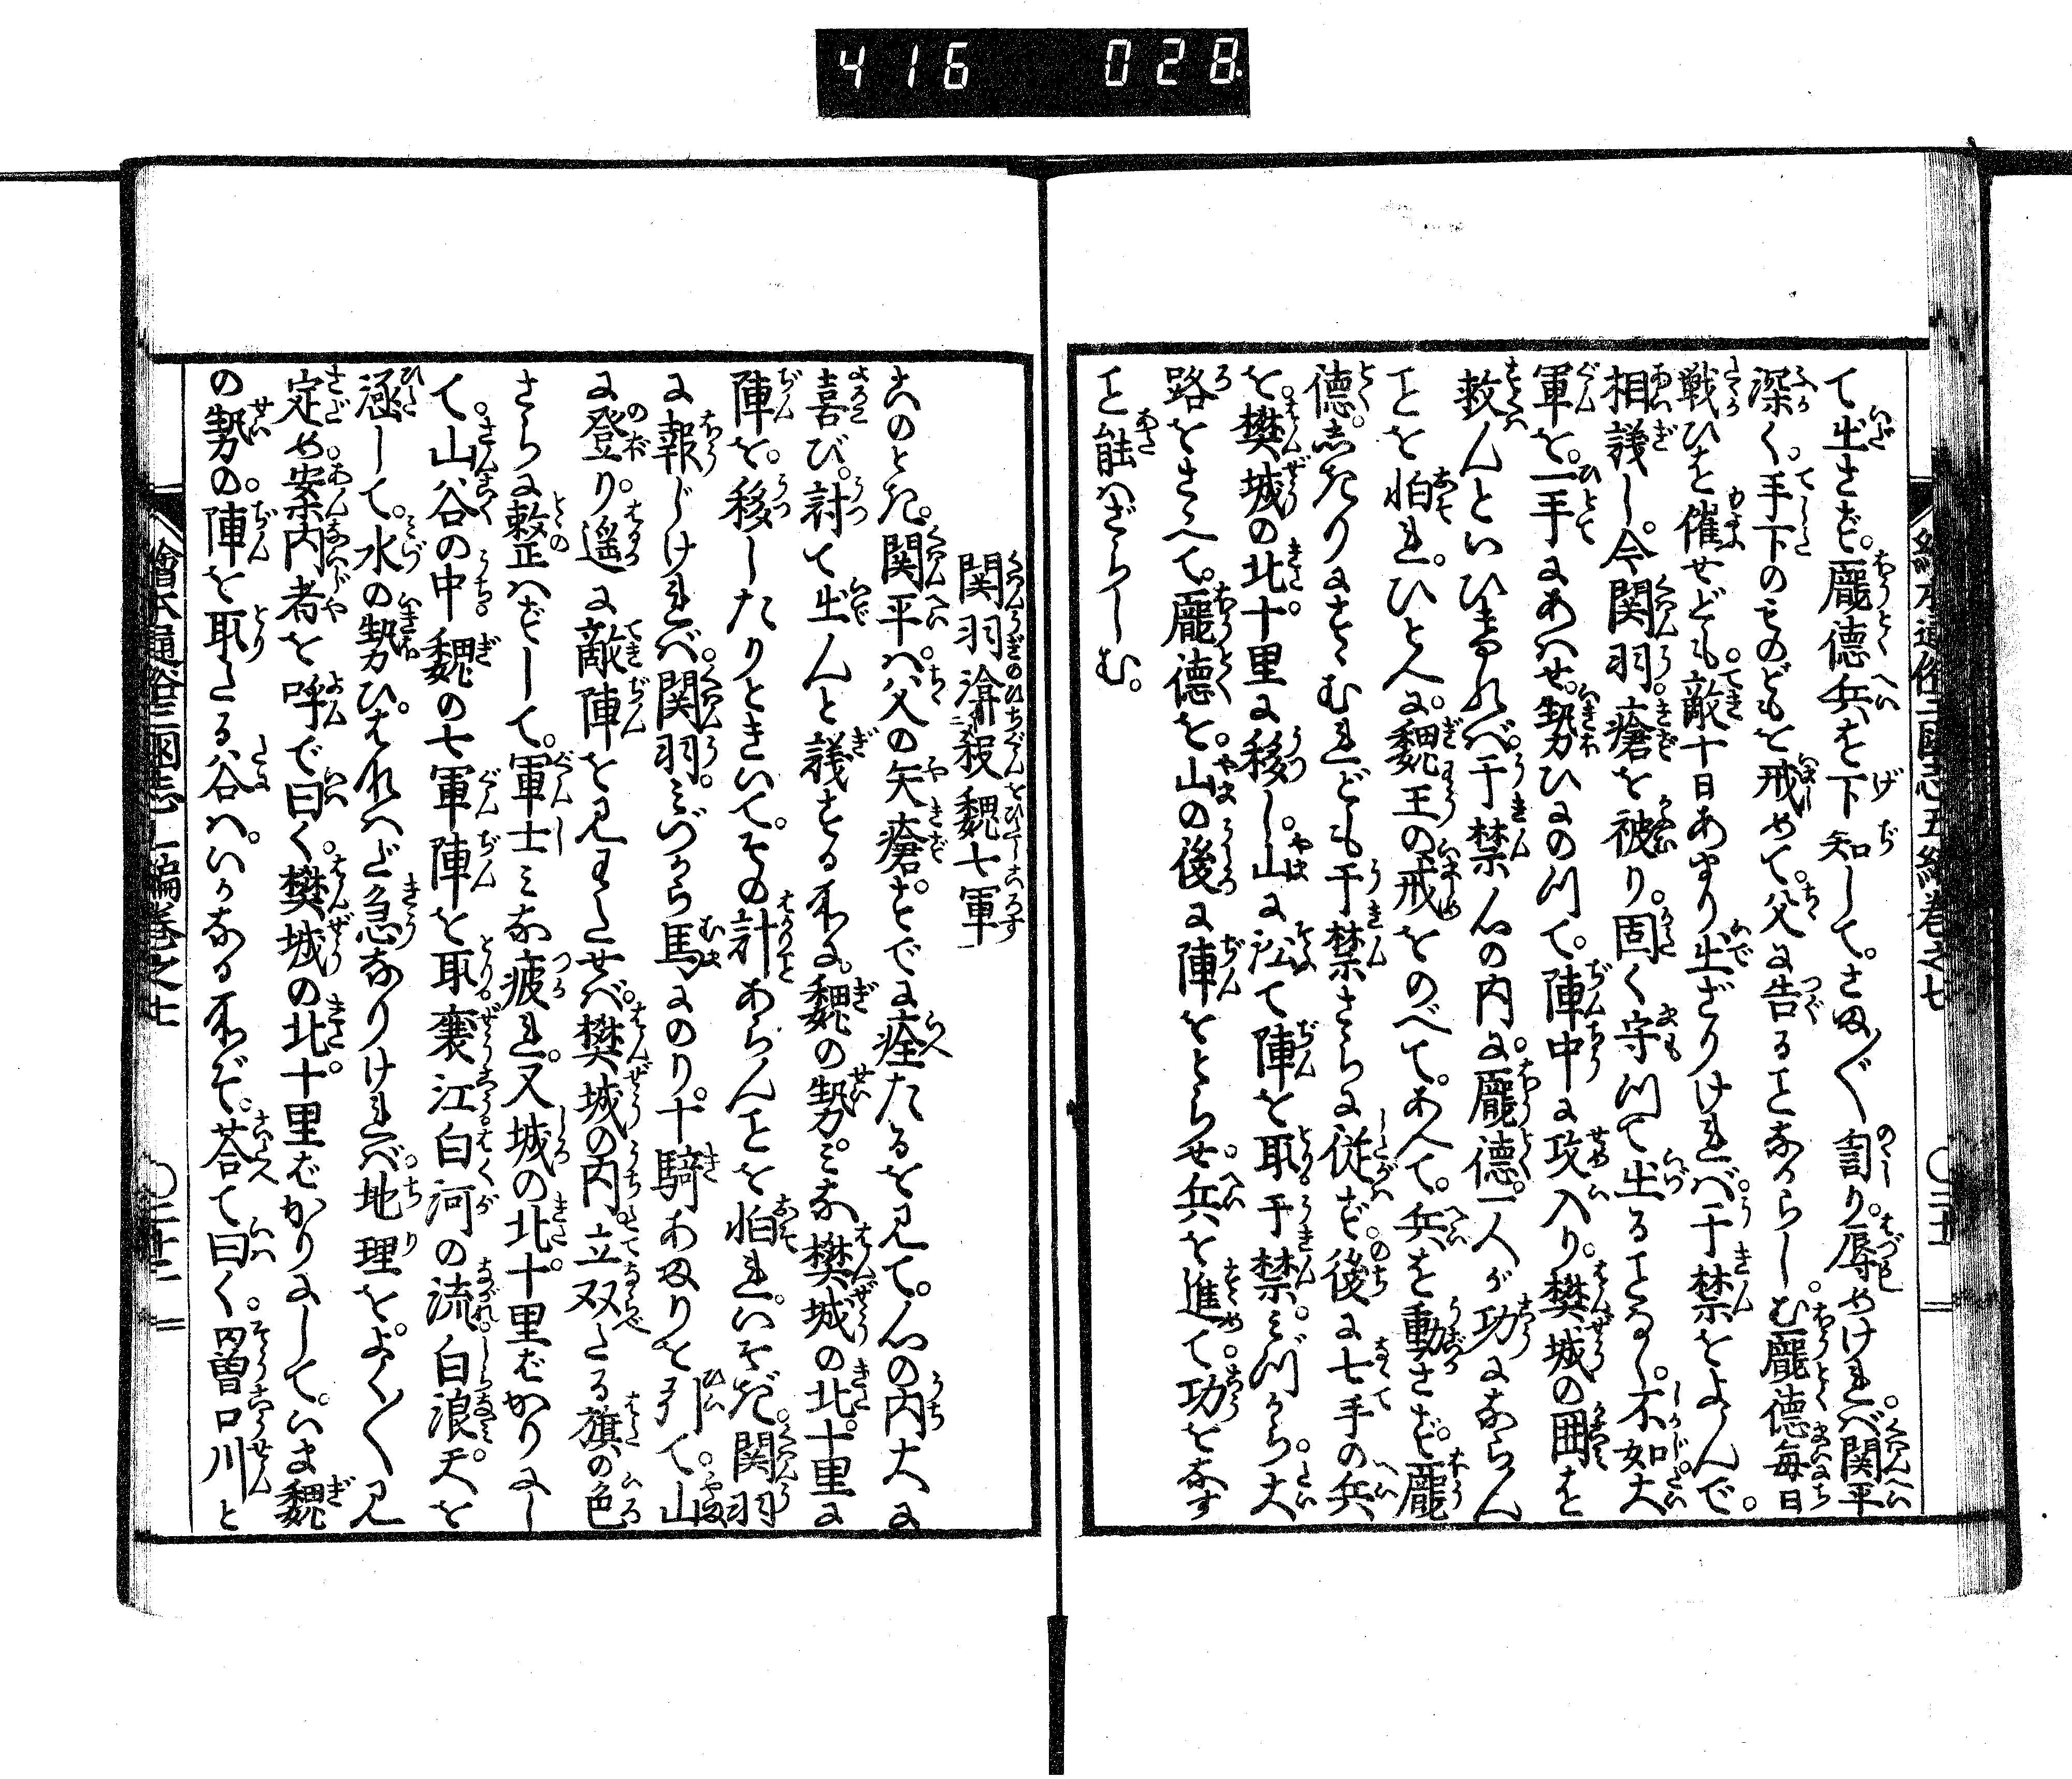 416 028
て出さず。龐徳兵を下知して。さま〴〵罰り。辱やけれバ。関平
深く。手下のものどもを戒めて。父に告ることなからしむ。龐徳毎日
戦ひを催せども。敵十日あまり出ざりければ。于禁をよんで。
相議し。今関羽。瘡を被り。固く守つて出ることなし。不如大
軍を。一手にあハせ。勢ひにのつて。陣中に攻入り。樊城の囲を
救んといひけれバ。于禁心の内に。龐徳一人が功にならん
ことを怕れ。ひとへに。魏王の戒をのべて。あへて。兵を動さず。龐
徳。志きりにすゝむれども于禁さらに従ず。後に七手の兵
を。樊城の北十里に移し。山に沿て陣を取于禁。ミづから大
路をさへて。龐徳を。山の後に陣をとらせ。兵を進て功をなす
こと能ハざらしむ。
繪本通俗三國志五編卷之七
関羽渰殺魏七軍
さのとき。関平ハ父の矢瘡。すでに痊たるを見て。心の内大に
喜び。討て出んと議する所に。魏の勢。ミな樊城の北十里に
陣を。移したりときいて。その計あらんことを怕れ。いそぎ。関羽
に報じけれバ。関羽。ミづから馬にのり。十騎あまりを引て。山
に登り。遥に敵陣を見わたせバ。樊城の内。立双たる旗の色
さらに整ハずして。軍士ミな疲れ。又城の北十里ばかりにし
て。山谷の中。魏の七軍陣を取。襄江白河の流。白浪天を
浸して。水の勢ひ。はなハだ急なりけれバ。地理を。よく〳〵見
定め。案内者を呼で曰く。樊城の北十里ばかりにして。いま魏
の勢の。陣を取たる谷ハ。いかなる所ぞ。荅て曰く。罾口川と
繪本通俗三國志五編卷之七 〇二十二